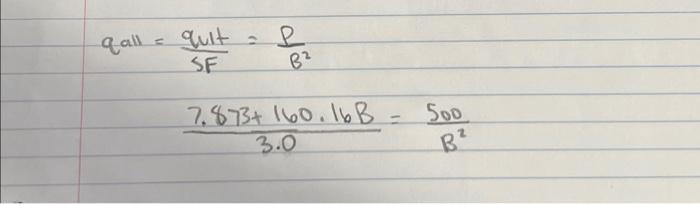 qall = qult/SF = P/B²
7.873+ 160.16B/3.0 = 500/B²